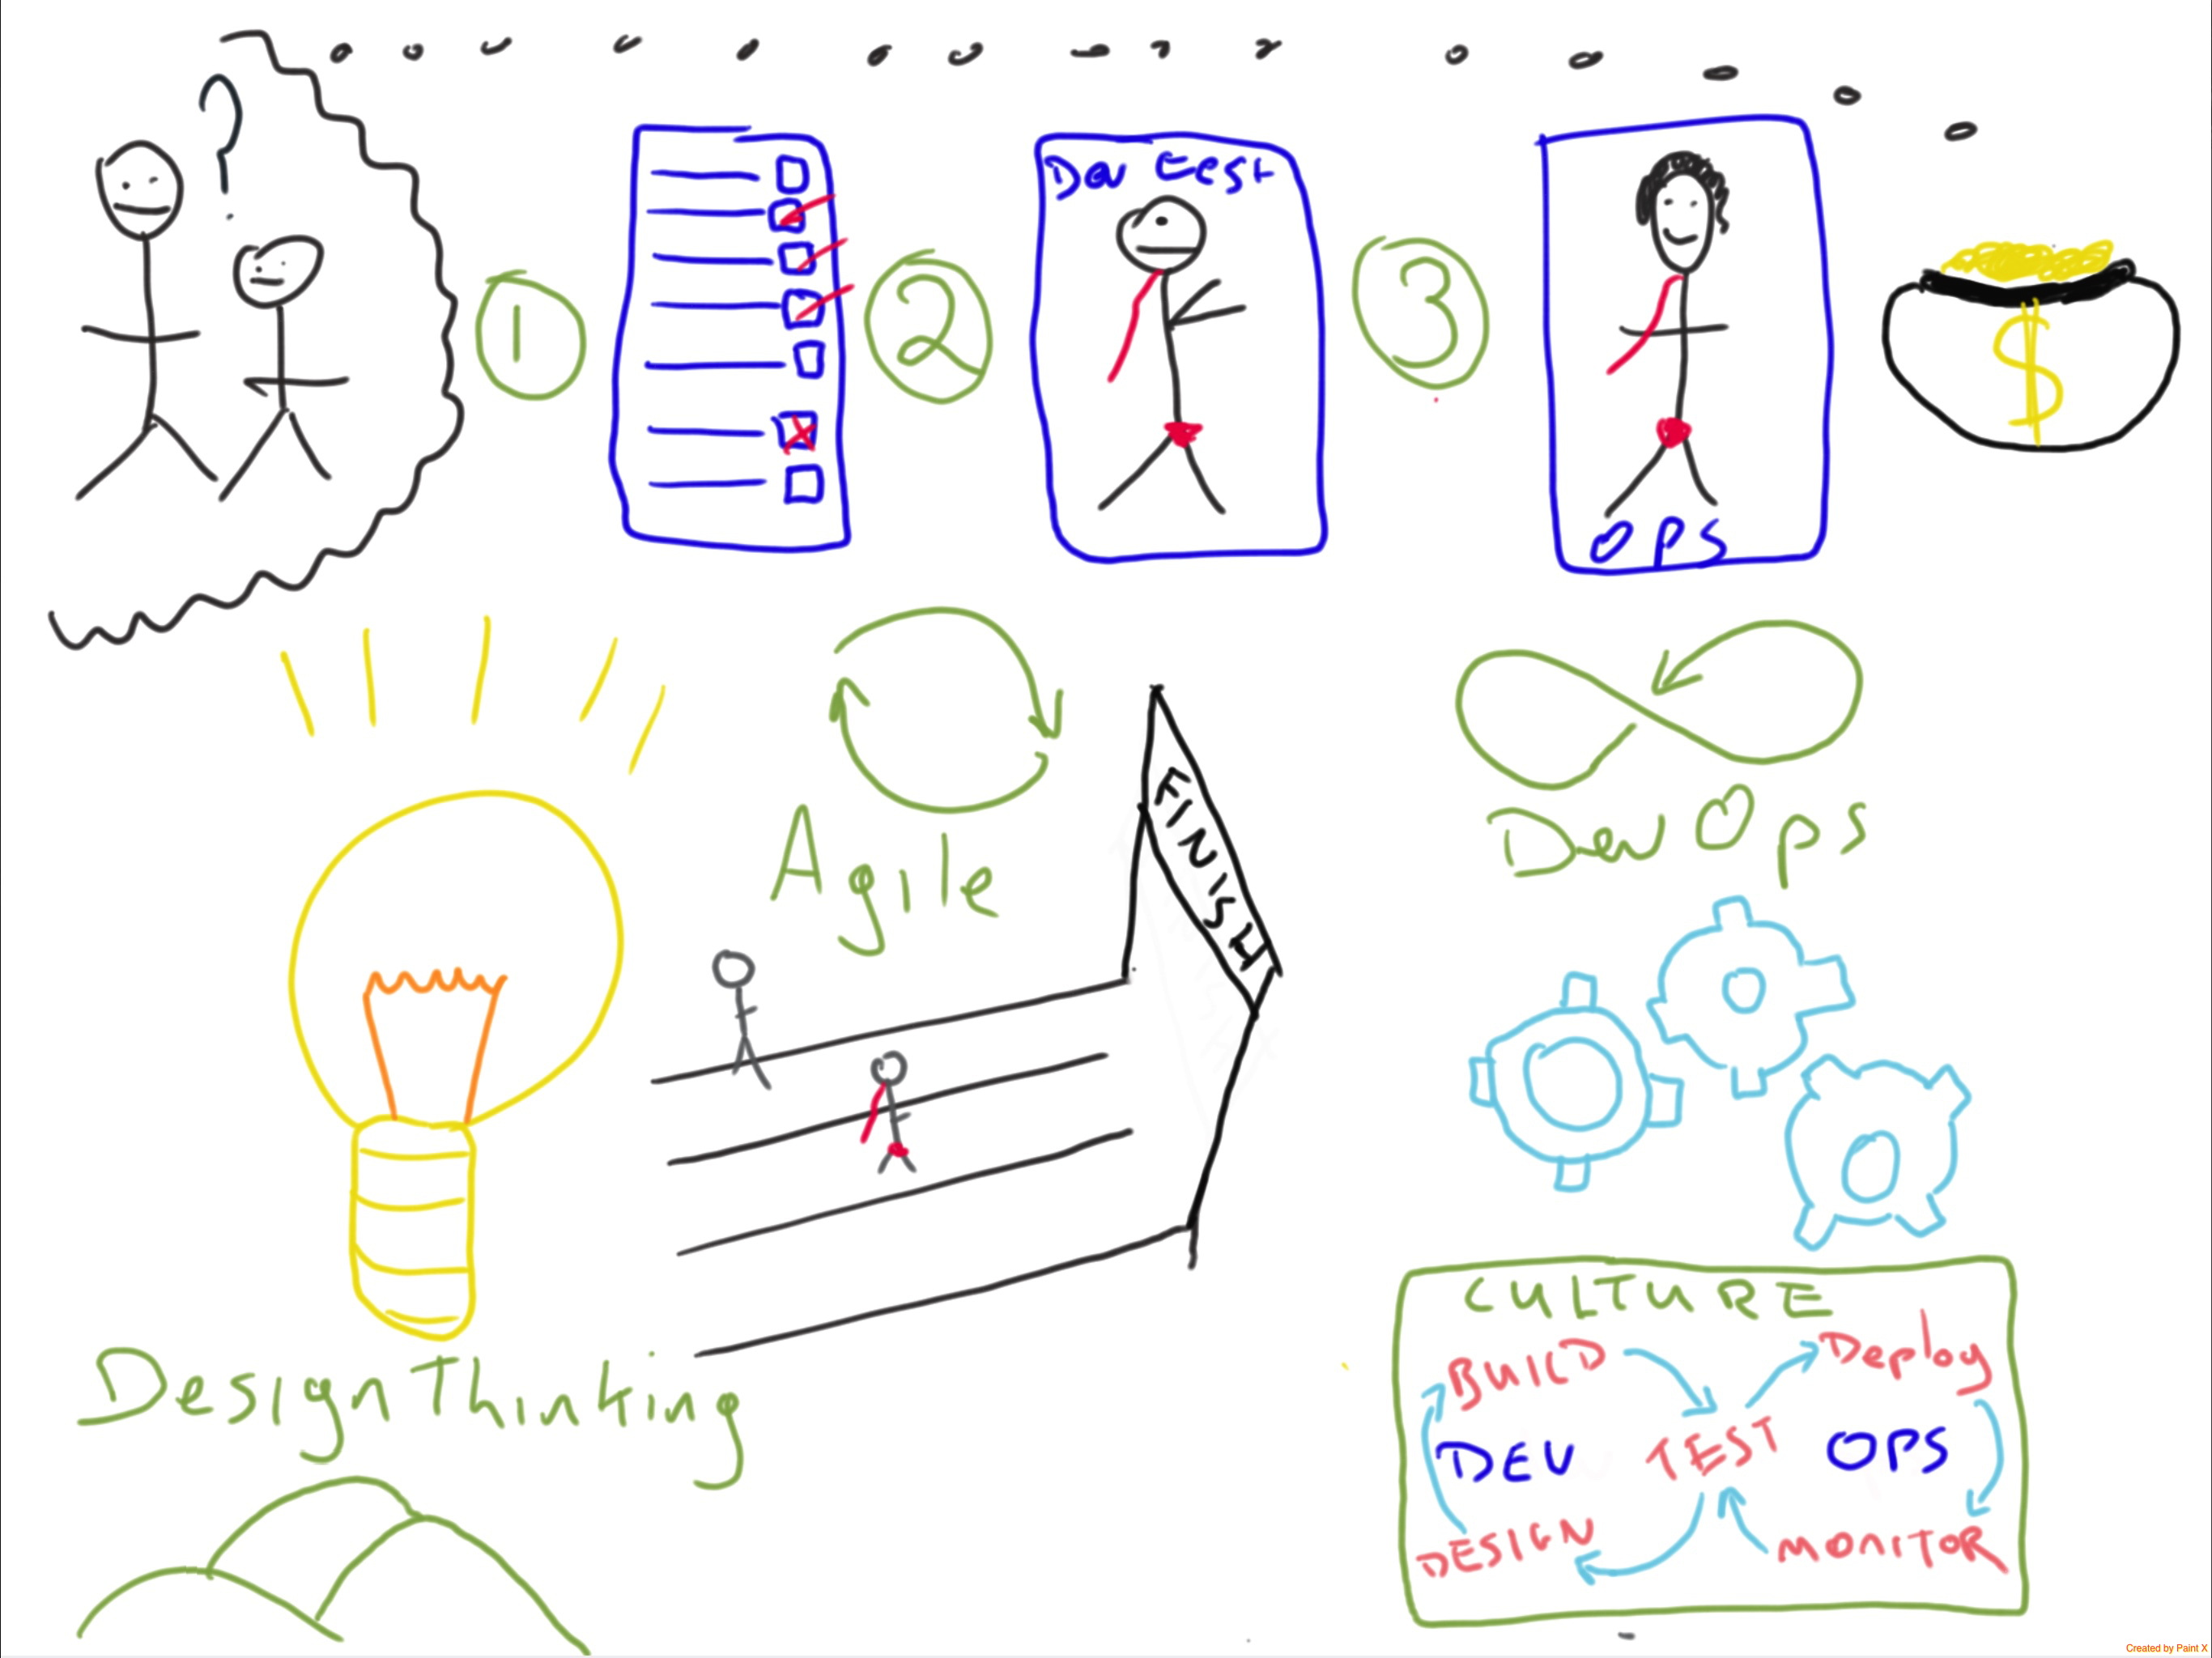 ?
1
2
Dev test
3
OPS
$
Agile
FINISH
DevOps
Design Thinking
CULTURE
BUILD
Deploy
DEV
TEST
OPS
DESIGN
MONITOR
Created by Paint X